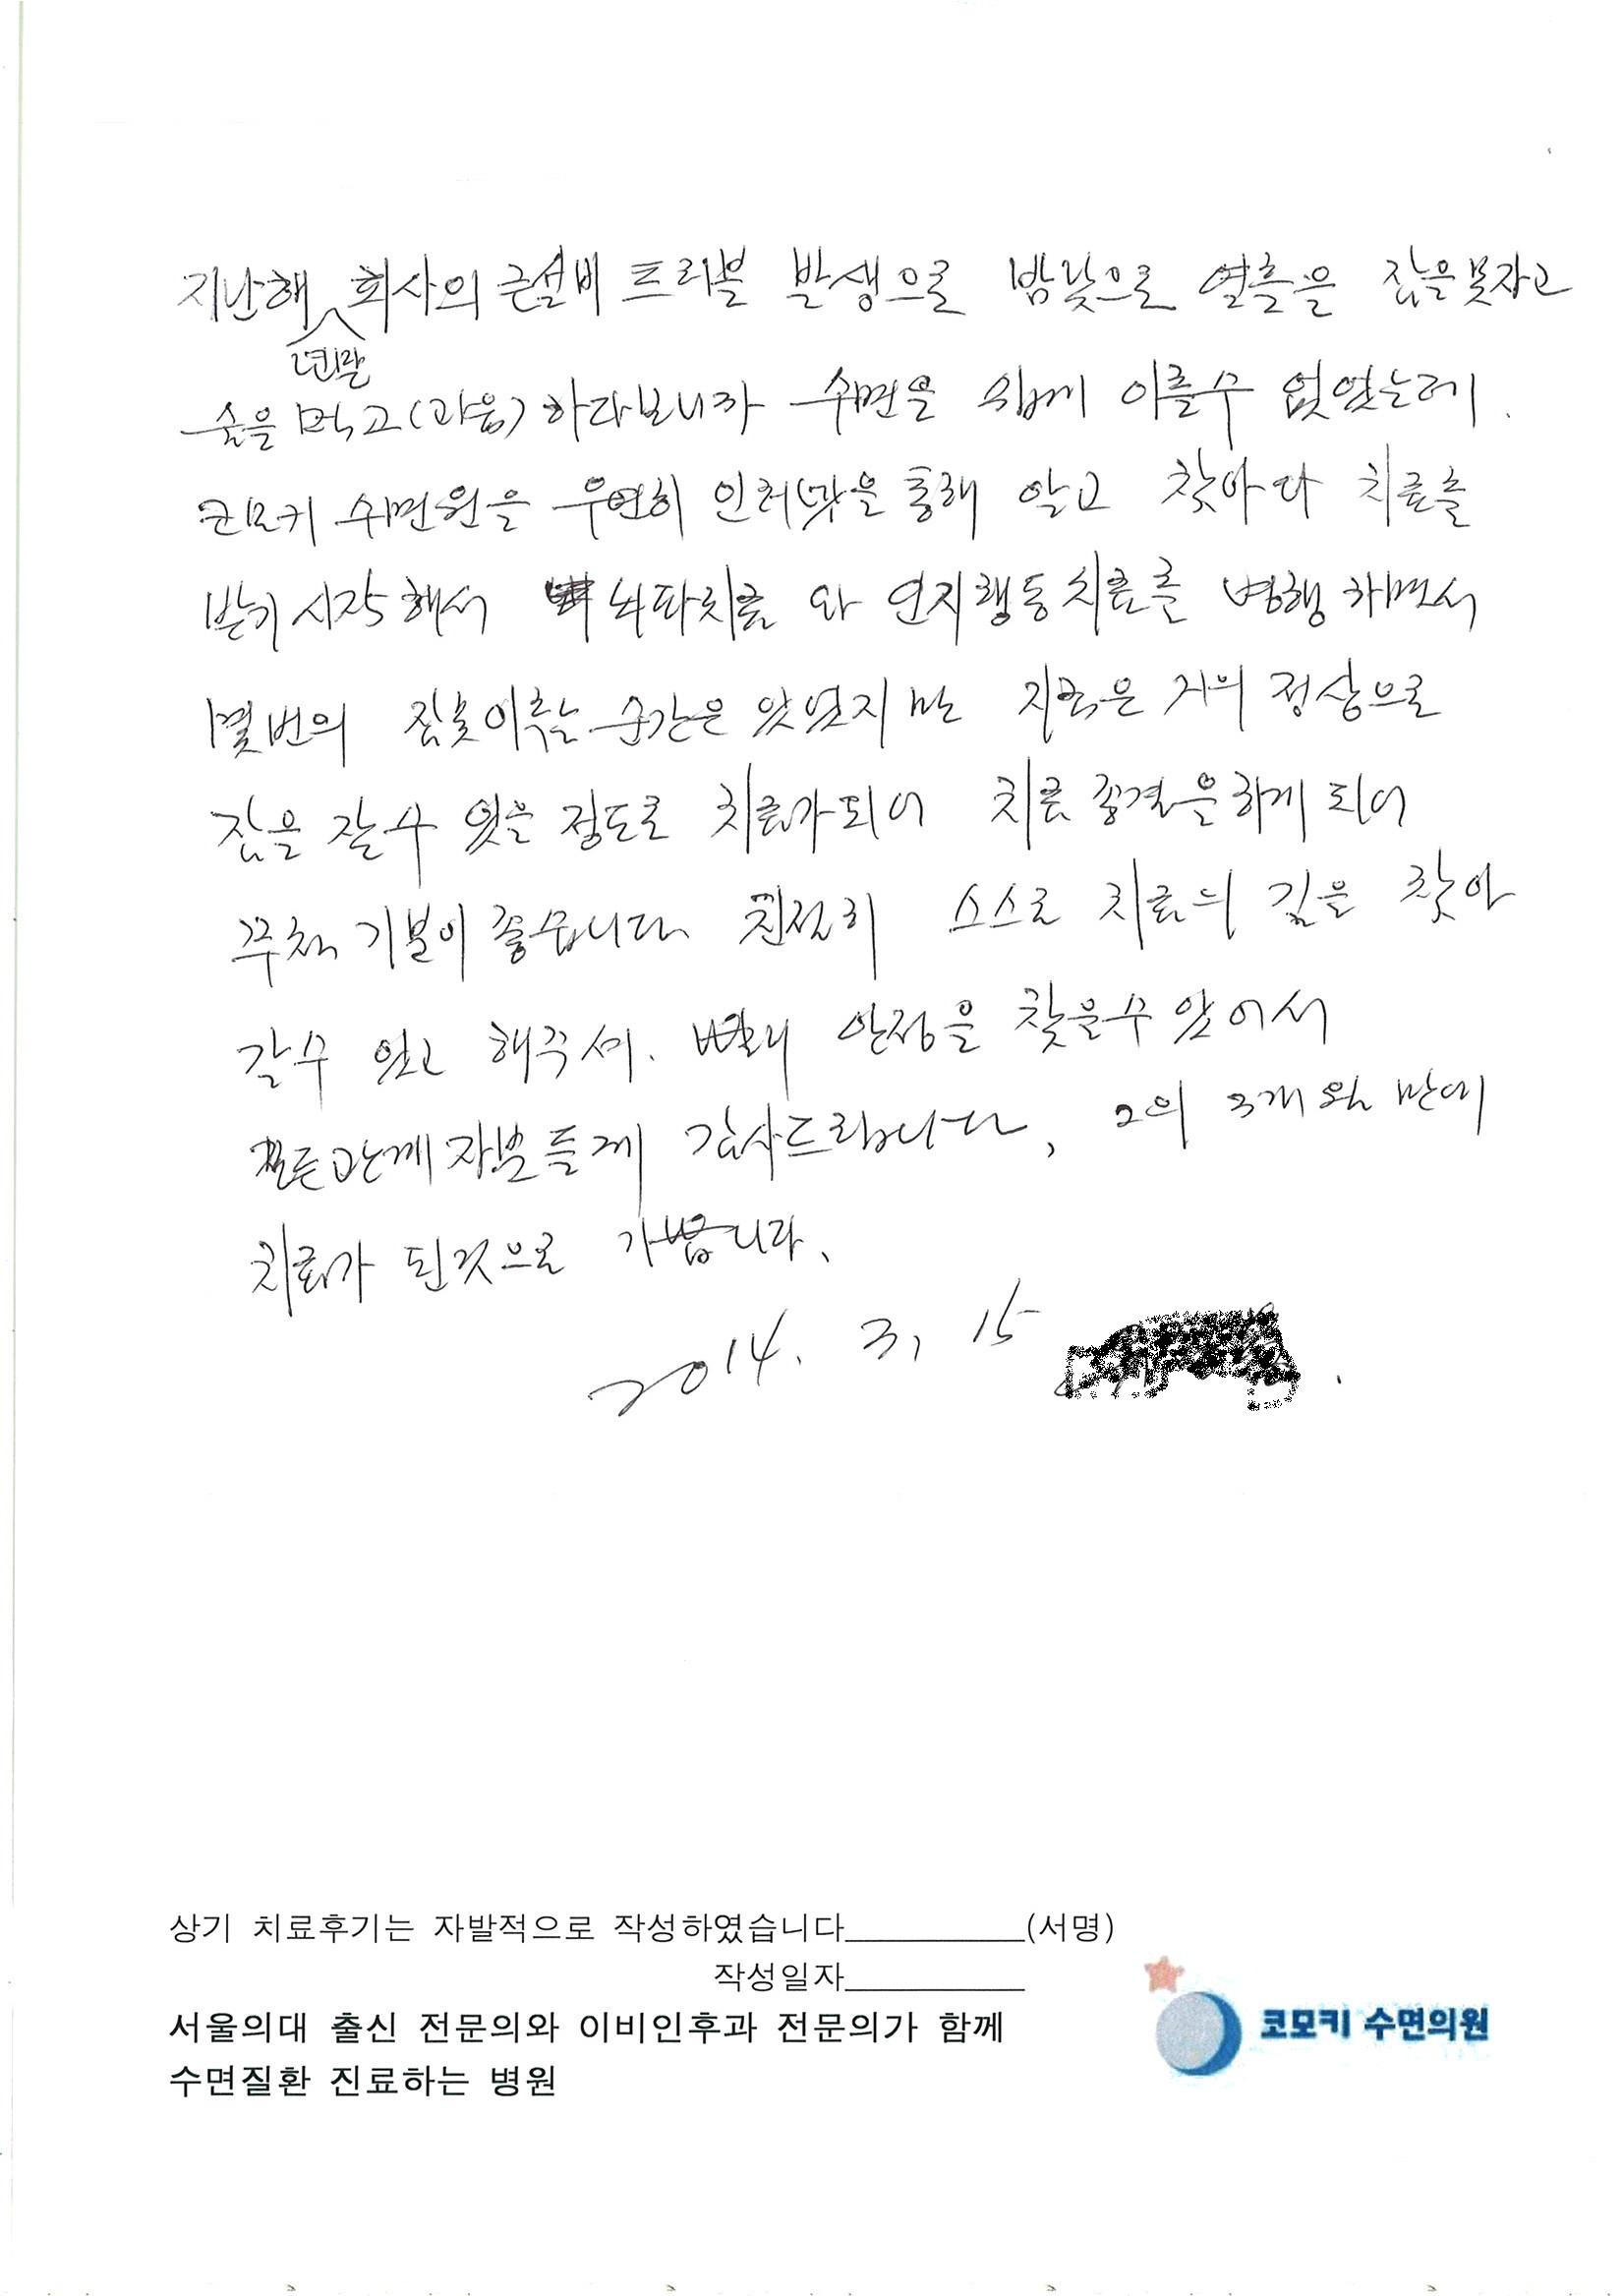 지난해 회사의 큰설비 트러블 발생으로 밤낮으로 열흘을 잠을못자고
년말
술을 먹고(과음) 하다보니까 수면을 쉽게 이룰수 없었는데.
코모키 수면원을 우연히 인터넷을 통해 알고 찾아다 치료를
받기 시작해서 뇌파치료 와 인지행동치료를 병행 하면서
몇번의 잠못이루는 순간은 있었지만 지금은 거의 정상으로
잠을 잘수 있을 정도로 치료가되어 치료종결을하게 되어
무척 기분이 좋습니다. 친절히 스스로 치료의 길을 찾아
갈수 있고 해주셔. 빨리 안정을 찾을수 있어서
모든관계자분들께 감사드립니다, 2의 3개월만에
치료가 된것으로 기쁩니다.
2014. 3, 15
상기 치료후기는 자발적으로 작성하였습니다__________(서명)
작성일자__________
서울의대 출신 전문의와 이비인후과 전문의가 함께
수면질환 진료하는 병원
코모키 수면의원